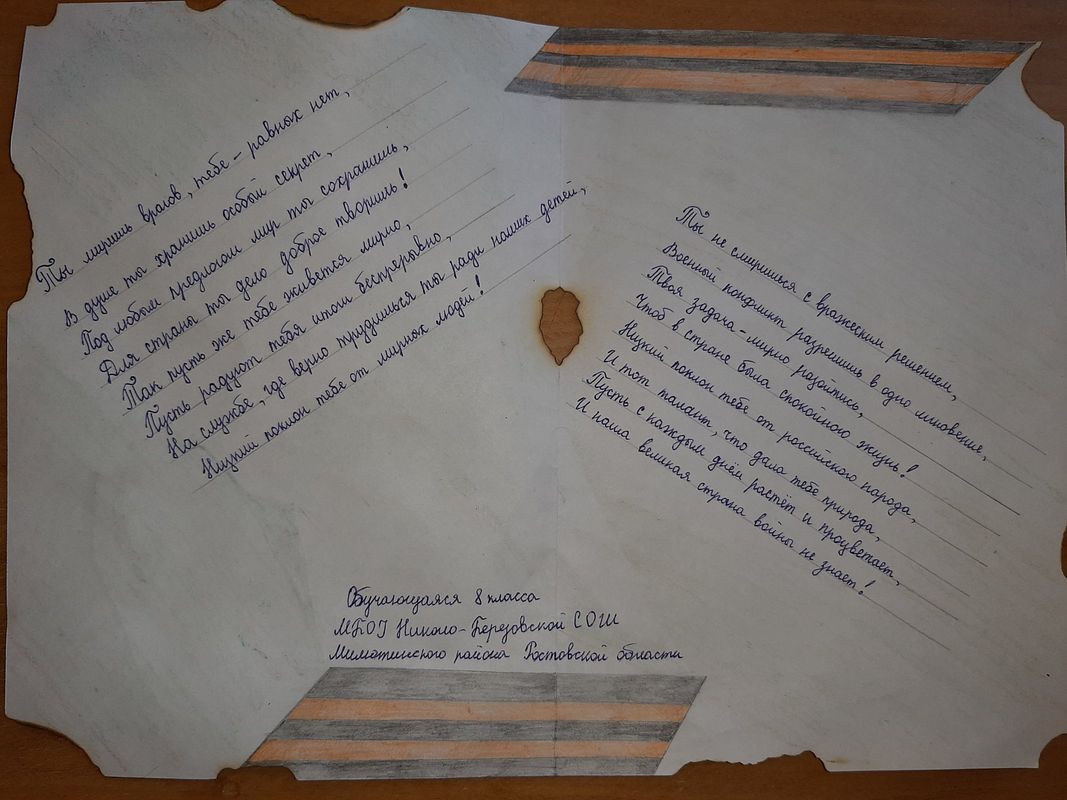 Ты миришь врагов, тебе - равных нет,
В душе ты хранишь особый секрет,
Под любым предлогом мир ты сохранишь,
Для страны ты дело доброе творишь!
Так пусть же тебе живётся мирно,
Пусть радуют тебя итоги беспрерывно,
На службе, где верно трудишься ты ради наших детей,
Низкий поклон тебе от мирных людей!
Ты не смиришься с вражеским решением,
Военный конфликт разрешишь в одно мгновение,
Твоя задача - мирно разойтись,
Чтоб в стране была спокойною жизнь!
Низкий поклон тебе от российского народа,
И тот талант, что дала тебе природа,
Пусть с каждым днём растёт и процветает,
И наша великая страна войны не знает!
Обучающаяся 8 класса
МБОУ Николо-Березовской СОШ
Милютинского района Ростовской области